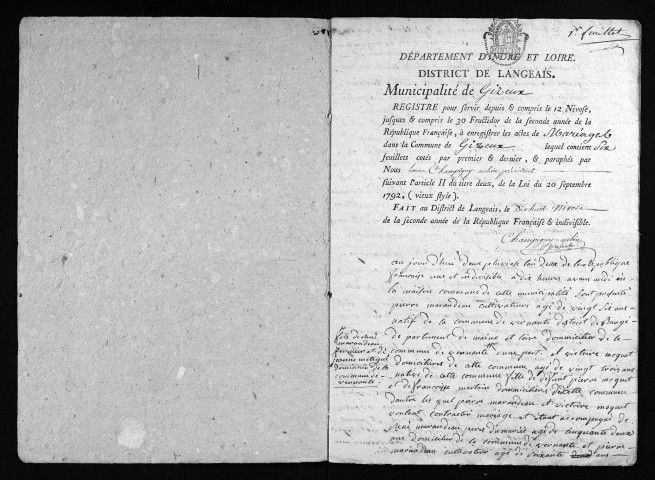 1er feuillet
DÉPARTEMENT D'INDRE ET LOIRE.
DISTRICT DE LANGEAIS.
Municipalité de Gizeux
REGISTRE pour servir depuis & compris le 12 Nivose,
jusques & compris le 30 Fructidor de la seconde année de la
République Française, à enregistrer les actes de Mariages
dans la Commune de Gizeux lequel contient Six
feuillets cotés par premier & dernier, & paraphés par
Nous Louis Champigny aubin président
suivant l'article II du titre deux, de la Loi du 20 Septembre
1792, (vieux style).
FAIT au District de Langeais, le dix huit Nivose
de la seconde année de la République Française & indivisible.
Champigny-aubin
président
aujourd'hui deux pluviose l'an deux de la république
française une et indivisible à dix heures avant midi en
la maison commune de cette municipalité sont présents
pierre marandeau cultivateur agé de vingt six ans
natif de la commune de vernante district de Baugé
département de maine et loire domicilier de la
commune de vernante d'une part. et victoire meguet
domiciliere de cette commune age de vingt trois ans
native de cette commune fille de défunt pierre meguet
et de francoise martin domiciliere de cette commune
d'autre les quel pierre marandeau et victoire meguet
voulant contracter mariage et étant accompagné de
marandeau pere du marié agé de cinquante deux
ans domicilier de la commune de vernante et pierre
marandeau cultivateur agé de soixante ans
fils de
marandeau
fermier et de
jeanne
domicilier de la
commune de
vernante